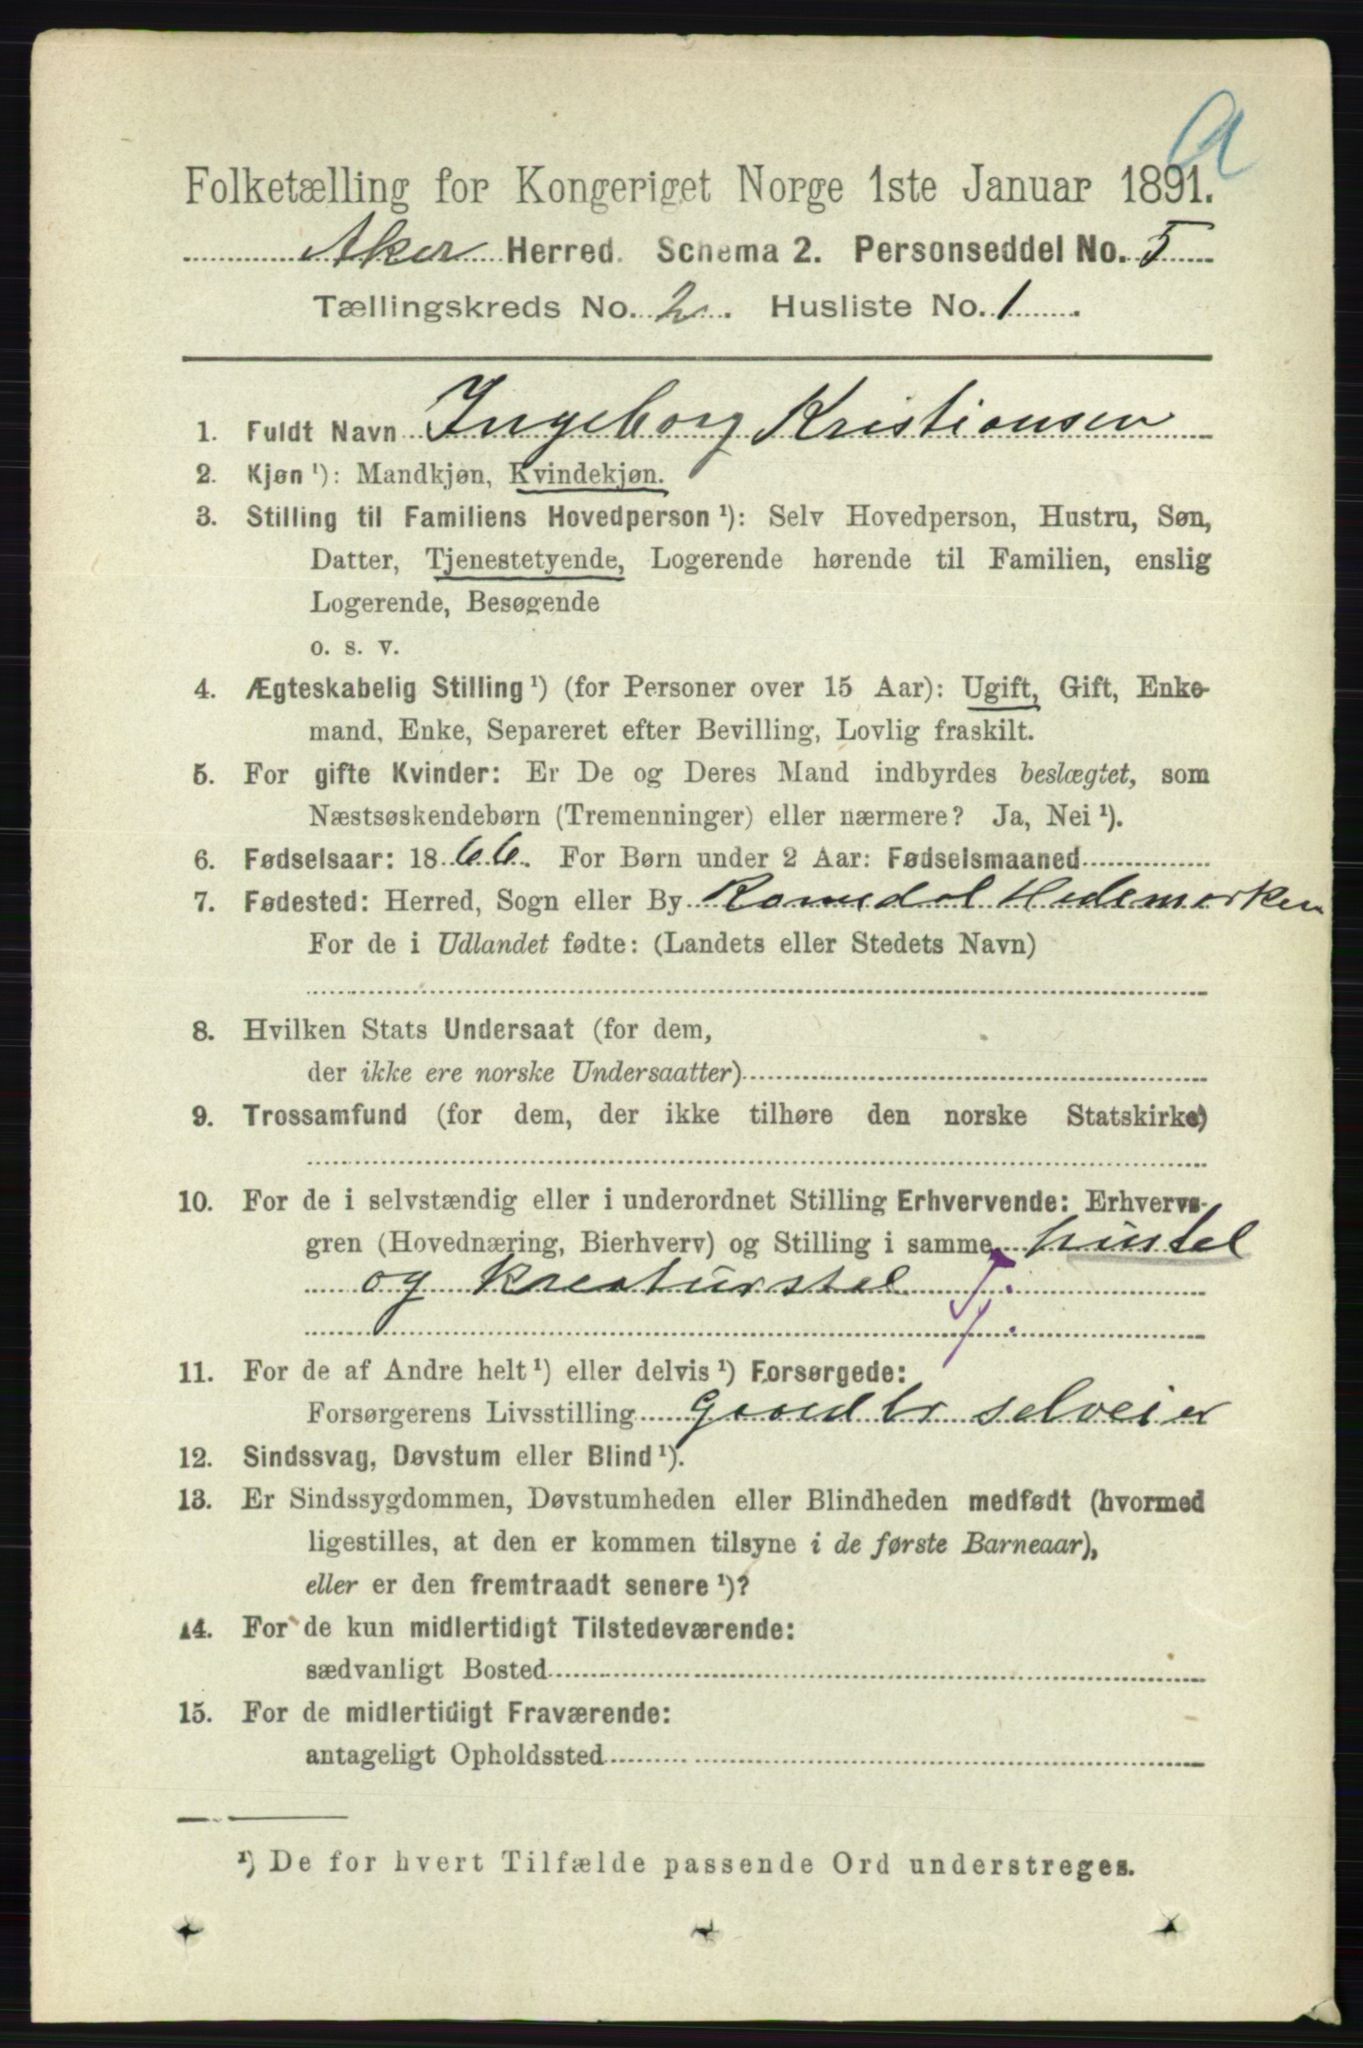 a
Folketælling for Kongeriget Norge 1ste Januar 1891.
Aker Herred. Schema 2. Personseddel No. 5
Tællingskreds No. 2. Husliste No. 1.
1. Fuldt Navn Ingeborg Kristiansen
2. Kjøn ¹): Mandkjøn, Kvindekjøn.
3. Stilling til Familiens Hovedperson ¹): Selv Hovedperson, Hustru, Søn,
Datter, Tjenestetyende, Logerende hørende til Familien, enslig
Logerende, Besøgende
o. s. v.
4. Ægteskabelig Stilling ¹) (for Personer over 15 Aar): Ugift, Gift, Enke-
mand, Enke, Separeret efter Bevilling, Lovlig fraskilt.
5. For gifte Kvinder: Er De og Deres Mand indbyrdes beslægtet, som
Næstsøskendebørn (Tremenninger) eller nærmere? Ja, Nei ¹).
6. Fødselsaar: 1866. For Børn under 2 Aar: Fødselsmaaned
7. Fødested: Herred, Sogn eller By Romedal Hedemarken
For de i Udlandet fødte: (Landets eller Stedets Navn)
8. Hvilken Stats Undersaat (for dem,
der ikke ere norske Undersaatter)
9. Trossamfund (for dem, der ikke tilhøre den norske Statskirke)
10. For de i selvstændig eller i underordnet Stilling Erhvervende: Erhvervs-
gren (Hovednæring, Bierhverv) og Stilling i samme hustel
og Kreaturstel T.
/.
11. For de af Andre helt ¹) eller delvis ¹) Forsørgede:
Forsørgerens Livsstilling Gaardbr selveier
12. Sindssvag, Døvstum eller Blind ¹).
13. Er Sindssygdommen, Døvstumheden eller Blindheden medfødt (hvormed
ligestilles, at den er kommen tilsyne i de første Barneaar),
eller er den fremtraadt senere ¹)?
14. For de kun midlertidigt Tilstedeværende:
sædvanligt Bosted
15. For de midlertidigt Fraværende:
antageligt Opholdssted
¹) De for hvert Tilfælde passende Ord understreges.